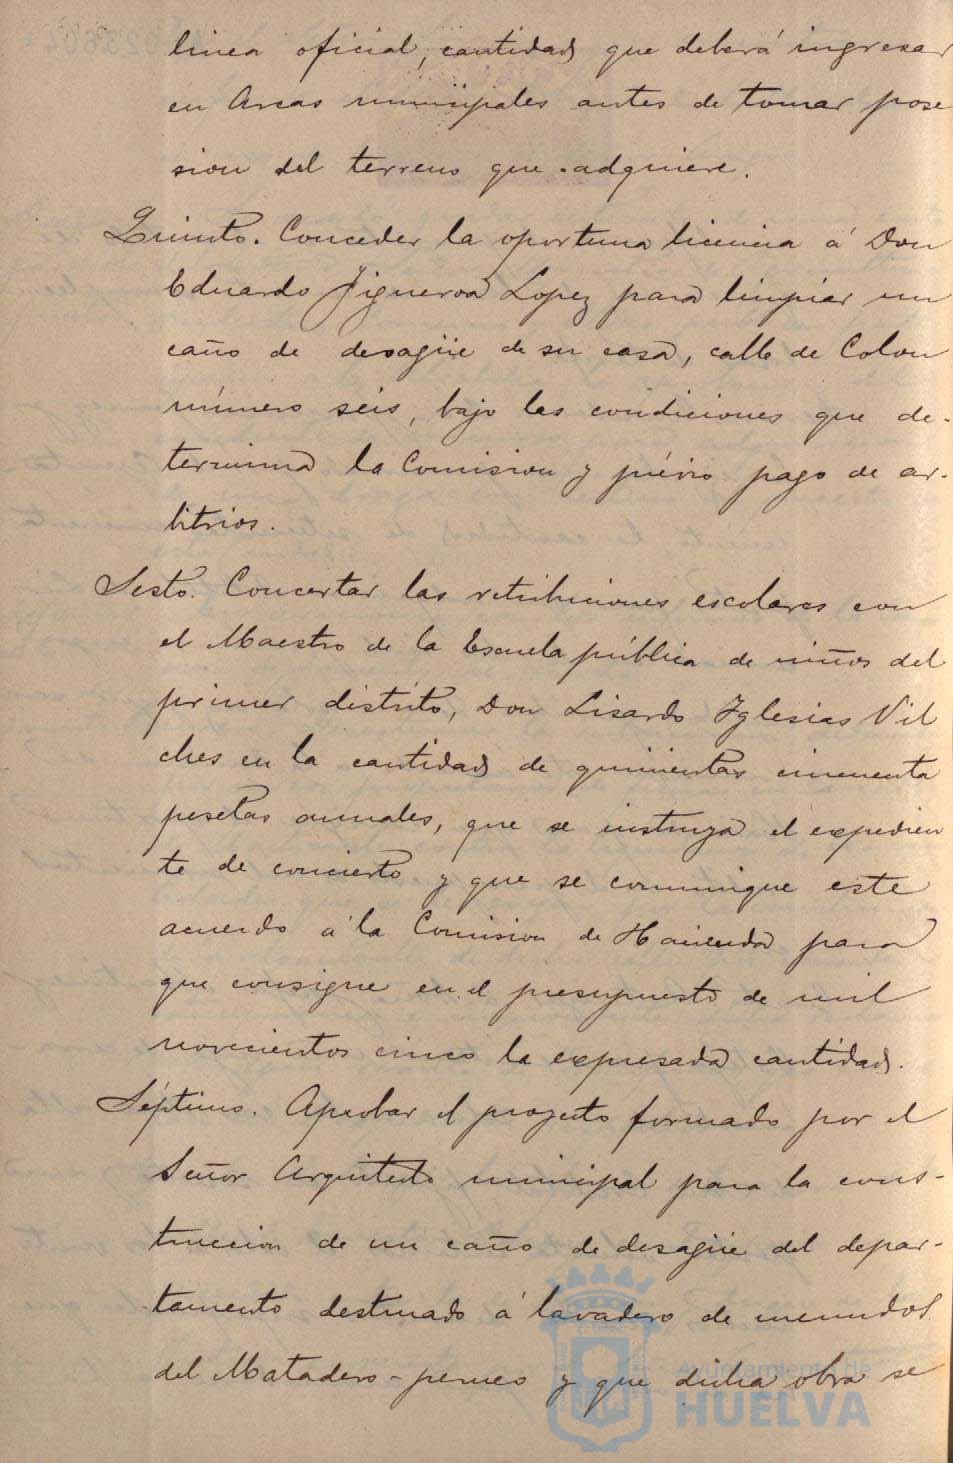 linea oficial, cantidad que deberá ingresar
en Arcas municipales antes de tomar pose
sion del terreno que adquiere.
Quinto. Conceder la oportuna licencia á Don
Eduardo Figueroa Lopez para limpiar un
caño de desagüe de su casa, calle de Colon
número seis, bajo las condiciones que de-
termina la Comision y prévio pago de ar-
bitrios.
Sesto. Concertar las retribuciones escolares con
el Maestro de la Escuela pública de niños del
primer distrito, Don Lisardo Iglesias Vil
ches en la cantidad de quinientas cincuenta
pesetas anuales, que se instruya el expedien
te de concierto y que se comunique este
acuerdo á la Comision de Hacienda para
que consigne en el presupuesto de mil
novecientos cinco la expresada cantidad.
Séptimo. Aprobar el proyecto formado por el
Señor Arquitecto municipal para la cons-
truccion de un caño de desagüe del depar-
tamento destinado á lavadero de menudos
del Matadero-perneo y que dicha obra se
Ayuntamiento de
HUELVA